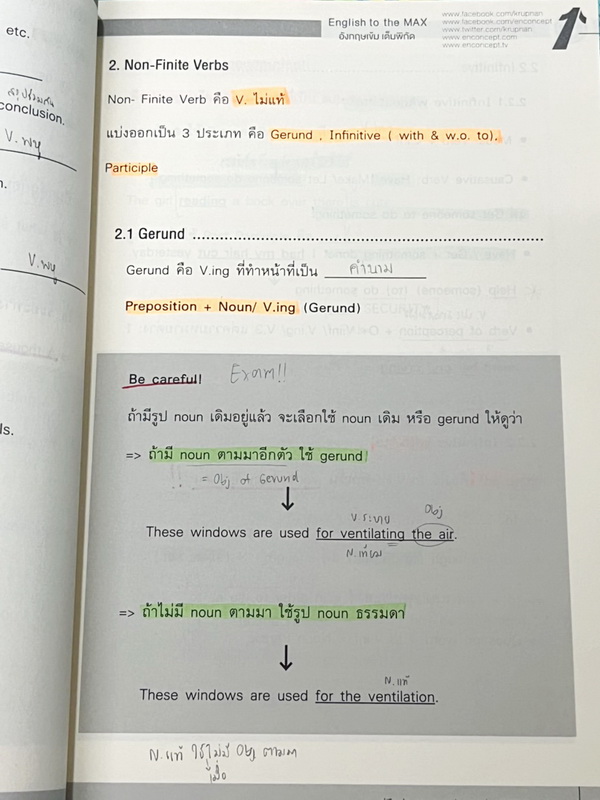 etc.
สรุปร่วมกัน
conclusion.
V. พหู
n.
V. พหู
ls.
English to the MAX
อังกฤษเข้ม เต็มพิกัด
www.facebook.com/krupnan
www.facebook.com/enconcept
www.twitter.com/krupnan
www.enconcept.com
www.enconcept.tv
2. Non-Finite Verbs
Non- Finite Verb คือ V. ไม่แท้
แบ่งออกเป็น 3 ประเภท คือ Gerund , Infinitive ( with & w.o. to),
Participle
2.1 Gerund
Gerund คือ V.ing ที่ทำหน้าที่เป็น คำนาม
Preposition + Noun/ V.ing (Gerund)
Be careful! Exam!!
ถ้ามีรูป noun เดิมอยู่แล้ว จะเลือกใช้ noun เดิม หรือ gerund ให้ดูว่า
=> ถ้ามี noun ตามมาอีกตัว ใช้ gerund!
!! = Obj of Gerund
V. ระบาย Obj
These windows are used for ventilating the air.
=> ถ้าไม่มี noun ตามมา ใช้รูป noun ธรรมดา
N. แท้
These windows are used for the ventilation.
N. แท้ ใช้เมื่อไม่มี Obj ตามมา